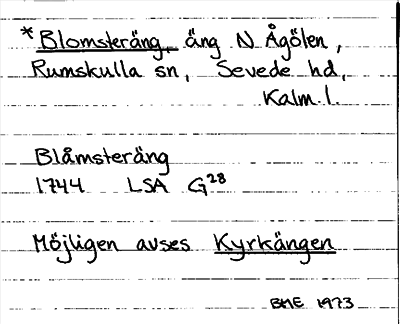 *Blomsteräng, äng N Ågölen,
Rumskulla sn, Sevede hd,
Kalm. l.
Blåmsteräng
1744 LSA G28
Möjligen avses Kyrkängen
BME 1973